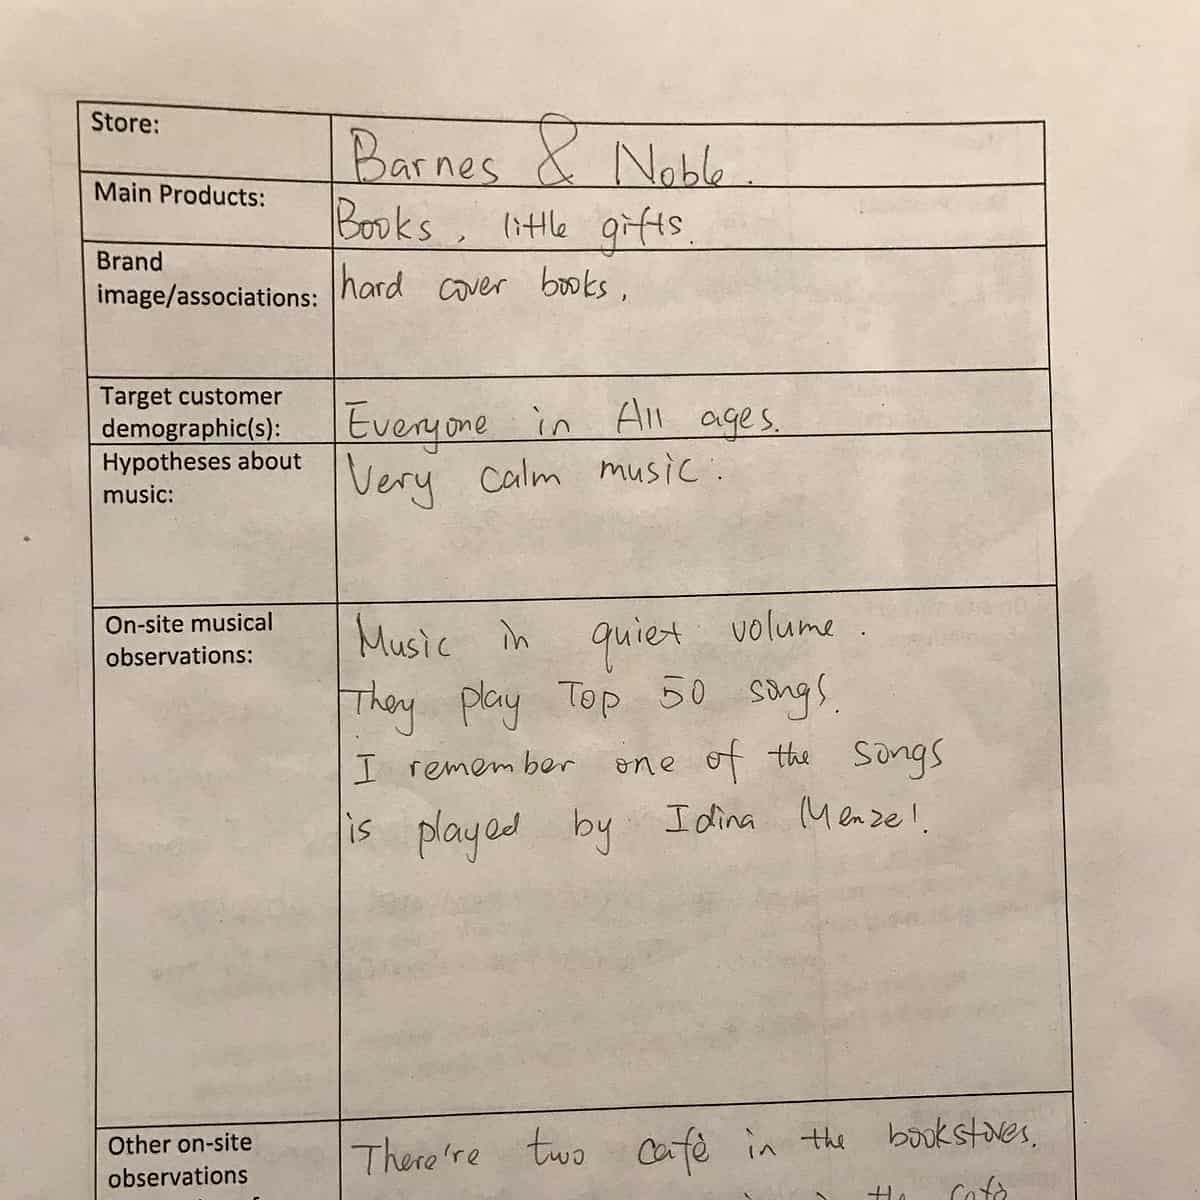 Store:
Barnes & Noble.
Main Products:
Books, little gifts.
Brand
image/associations:
hard cover books,
Target customer
demographic(s):
Everyone in All ages.
Hypotheses about
music:
Very calm music.
On-site musical
observations:
Music in quiet volume.
They play Top 50 songs.
I remember one of the songs
is played by Idina Menzel.
Other on-site
observations
There're two cafè in the bookstores.
the cafè